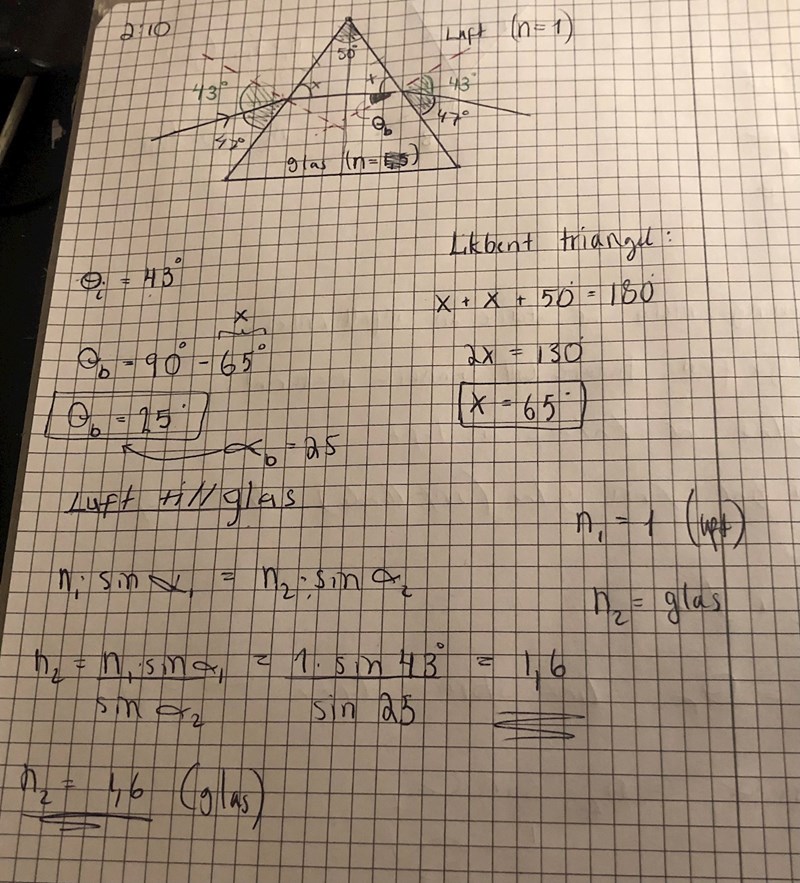 2:10
Luft (n=1)
50°
x
x
43°
43°
47°
47°
θb
glas (n=
Likbent triangel:
θi = 43°
x + x + 50° = 180°
x
θb = 90° - 65°
2x = 130°
θb = 25°
x = 65°
αb = 25
Luft till glas
n1 = 1 (luft)
n1 · sin α1 = n2 · sin α2
n2 = glas
n2 = n1 · sin α1 / sin α2 = 1 · sin 43° / sin 25 = 1,6
n2 = 1,6 (glas)